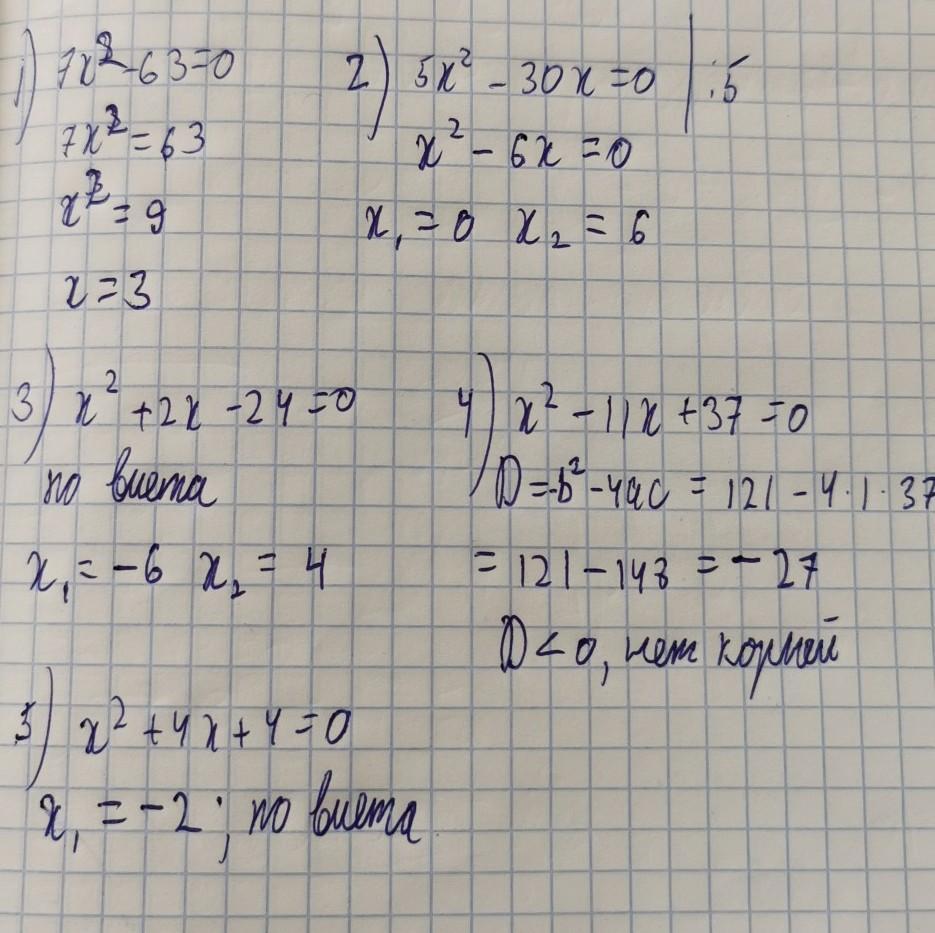 1) 7x²-63=0
7x²=63
x²=9
x=3
2) 5x² - 30x = 0 | :5
x² - 6x = 0
x₁ = 0 x₂ = 6
3) x² +2x -24 =0
по виета
x₁ = -6 x₂ = 4
4) x² - 11x + 37 = 0
D = b² - 4ac = 121 - 4·1·37
= 121 - 148 = - 27
D < 0, нет корней
5) x² + 4x + 4 = 0
x₁ = -2 ; по виета